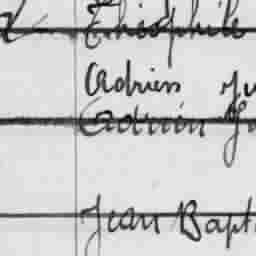 Théophile
Adrien Ju
Adrien Ju
Jean Bapt